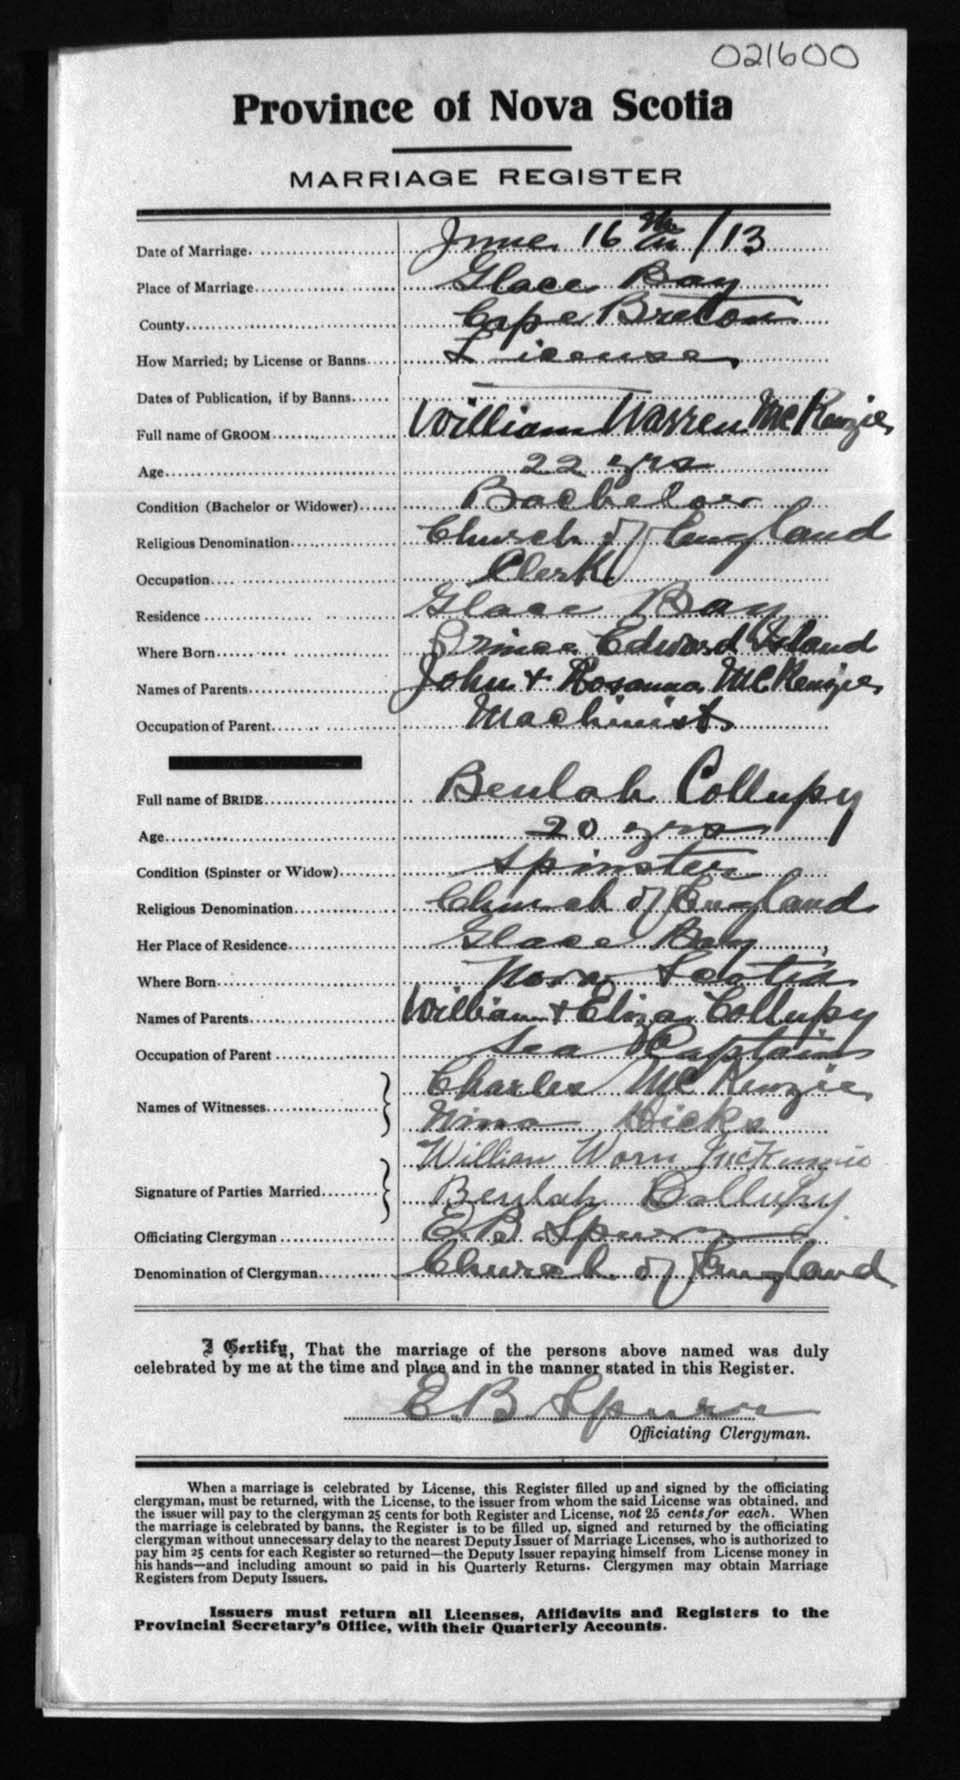 021600
Province of Nova Scotia
MARRIAGE REGISTER
Date of Marriage June 16th /13
Place of Marriage Glace Bay
County Cape Breton
How Married; by License or Banns License
Dates of Publication, if by Banns
Full name of GROOM William Warren McKenzie
Age 22 yrs
Condition (Bachelor or Widower) Bachelor
Religious Denomination Church of England
Occupation Clerk
Residence Glace Bay
Where Born Prince Edward Island
Names of Parents John & Rosanna McKenzie
Occupation of Parent Machinist
Full name of BRIDE Beulah Collupy
Age 20 yrs
Condition (Spinster or Widow) Spinster
Religious Denomination Church of England
Her Place of Residence Glace Bay
Where Born Nova Scotia
Names of Parents William & Eliza Collupy
Occupation of Parent Sea Captain
Names of Witnesses Charles McKenzie
Nina Hicks
Signature of Parties Married William Worn McKenzie
Beulah Collupy
Officiating Clergyman E B Spurr
Denomination of Clergyman Church of England
I Certify, That the marriage of the persons above named was duly
celebrated by me at the time and place and in the manner stated in this Register.
E B Spurr
Officiating Clergyman.
When a marriage is celebrated by License, this Register filled up and signed by the officiating
clergyman, must be returned, with the License, to the issuer from whom the said License was obtained, and
the issuer will pay to the clergyman 25 cents for both Register and License, not 25 cents for each. When
the marriage is celebrated by banns, the Register is to be filled up, signed and returned by the officiating
clergyman without unnecessary delay to the nearest Deputy Issuer of Marriage Licenses, who is authorized to
pay him 25 cents for each Register so returned—the Deputy Issuer repaying himself from License money in
his hands—and including amount so paid in his Quarterly Returns. Clergymen may obtain Marriage
Registers from Deputy Issuers.
Issuers must return all Licenses, Affidavits and Registers to the
Provincial Secretary's Office, with their Quarterly Accounts.